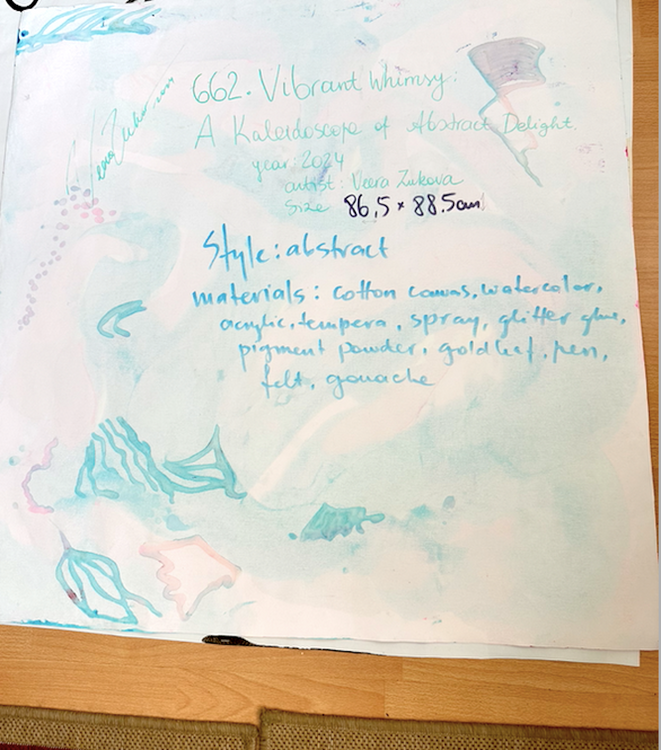 662. Vibrant Whimsy:
A Kaleidoscope of Abstract Delight.
year: 2024
artist: Veera Zukova
Size 86,5 × 88.5cm
Style: abstract
materials: cotton canvas, watercolor,
acrylic, tempera, spray, glitter glue,
pigment powder, goldleaf, pen,
felt, gouache